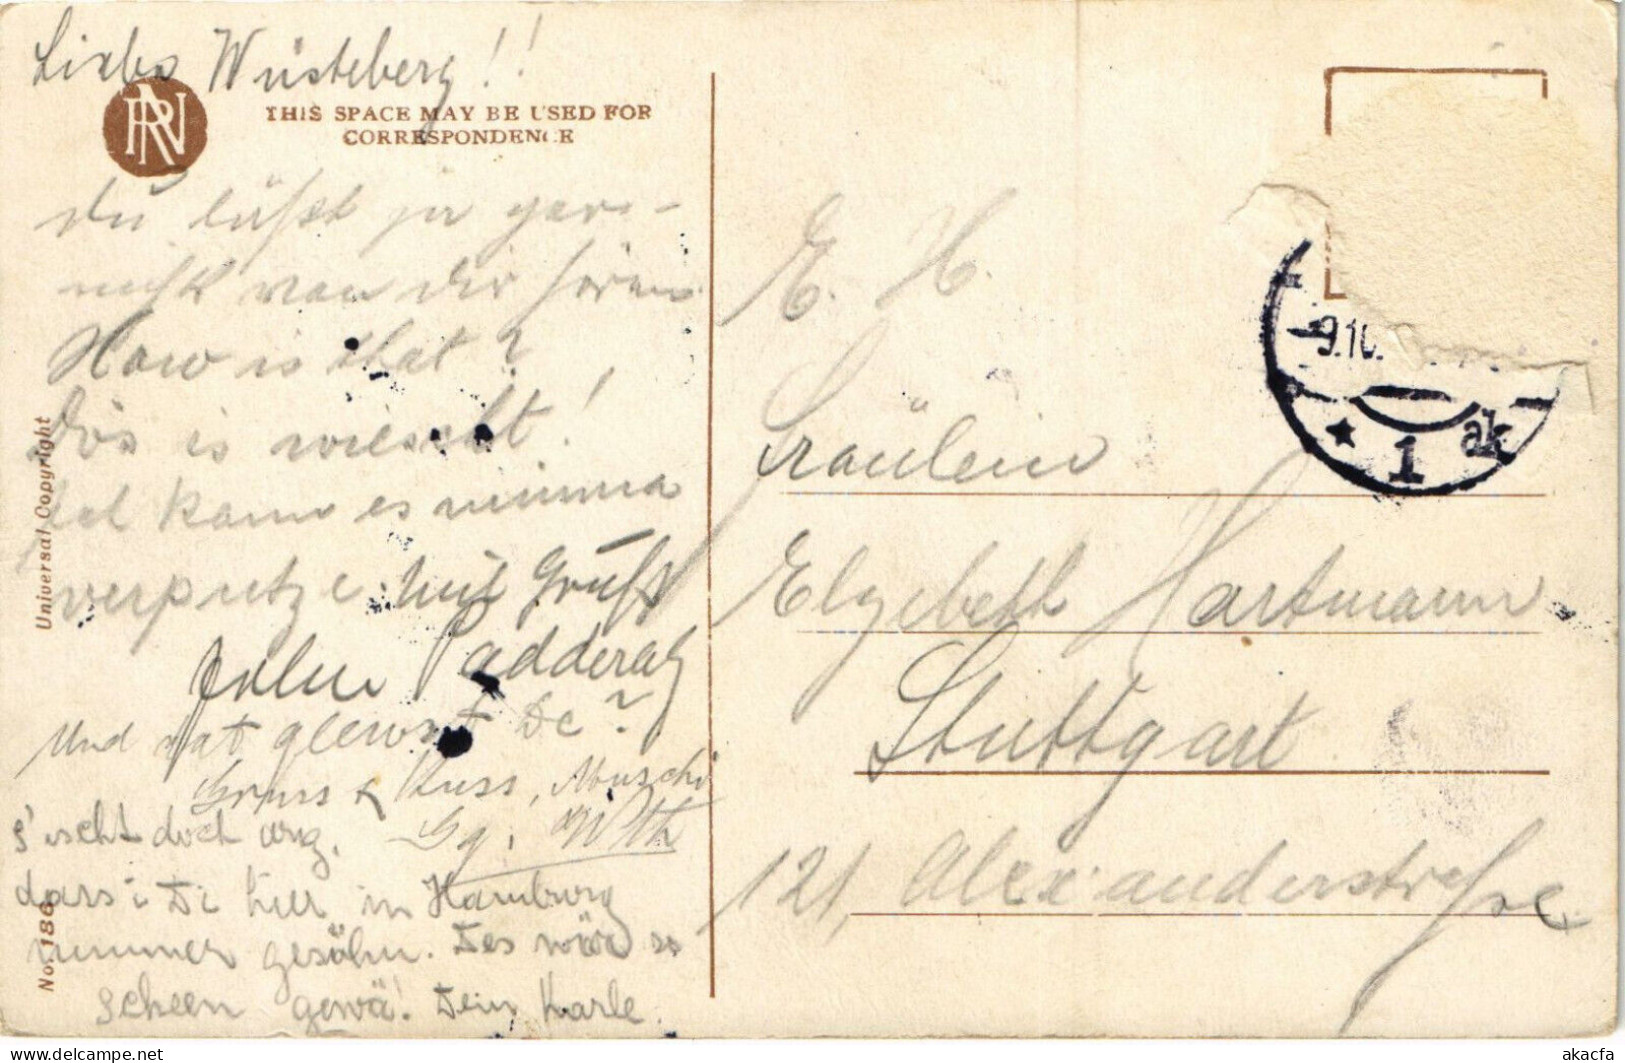 Liebs Wüsteberg!!
RN
THIS SPACE MAY BE USED FOR
CORRESPONDENCE
du läßt ja gar-
nicht von dir hören
How is that?
Dös is wiescht!
Ich kann es nimma
verputze. Mit Gruß
Padderatz
Und hat glewst De?
Gruss & Kuss, Muschi
s'ischt doch arg,
dass i Di hier in Hamburg
nimmer gesähn. Des wär so
scheen gewä! Dein Karle.
Universal Copyright
No. 186
E. H.
Fräulein
Elzebeth Hartmann
Stuttgart
121, Alexanderstraße
9.10.
* 1 ak
akacfa